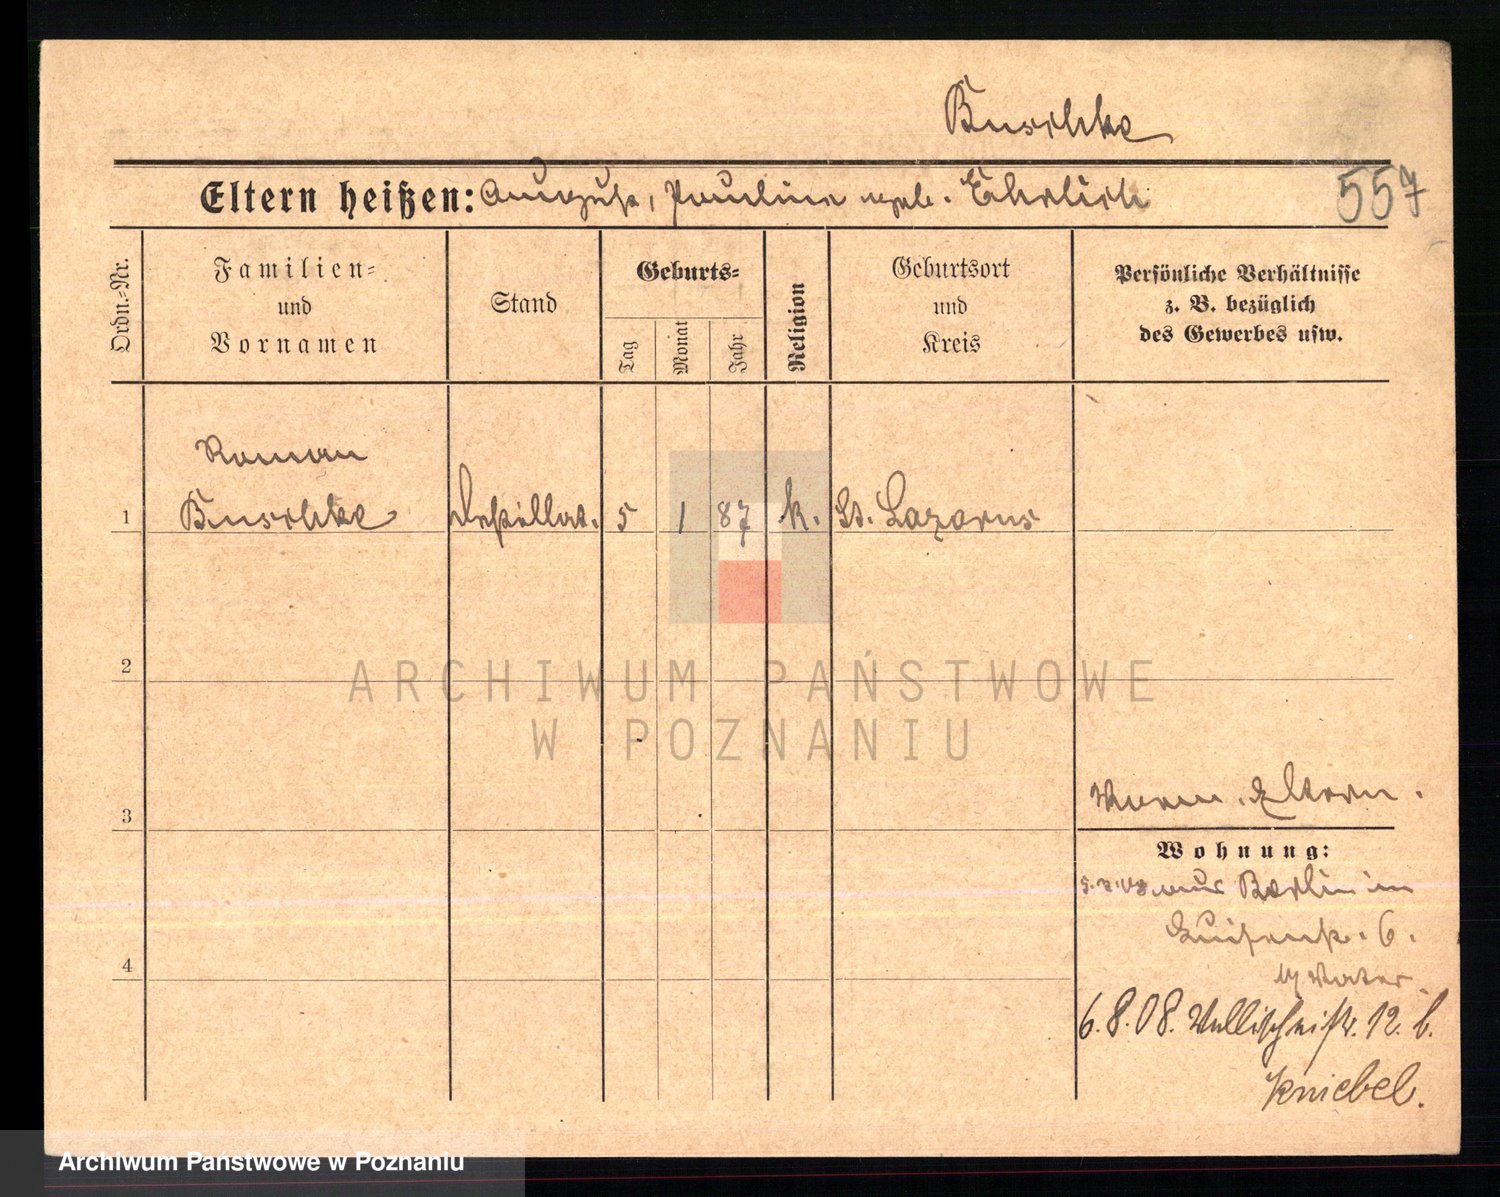 Buschke
Eltern heißen: August, Pauline geb. Ehrlich
557
Ordn.-Nr.
Familien-
und
Vornamen
Stand
Geburts-
Tag
Monat
Jahr
Religion
Geburtsort
und
Kreis
Persönliche Verhältnisse
z. B. bezüglich
des Gewerbes usw.
Roman
1 Buschke Destillat. 5 1 87 k. St. Lazarus
2
ARCHIWUM PAŃSTWOWE
W POZNANIU
3
Eltern.
Wohnung:
aus Berlin in
Luisenstr. 6.
b/ Vater.
4
6.8.08. 12. b.
Kniebel.
Archiwum Państwowe w Poznaniu